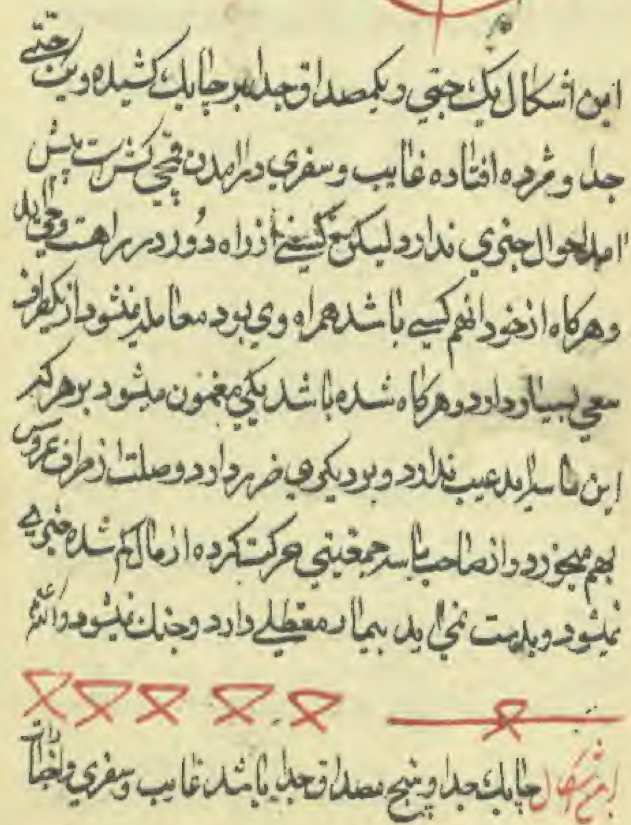 این اشکال یک جتی و یکمصداق جدا بر جابلک کشیده و یک جتی
جدا و مرده افتاده غایب و سفری در امدن قمچی کش است پیش
امد احوال جنری ندارد لیکن کسی از راه دور در راهت و می اید
و هرکاه از خود انهم کیسی باشد همراه وی بود معامله نمیشود از یکطرف
سعی بسیار دارد و هرکاه شده باشد یکی مغمون میشود بر هر که
این تاس امد عیب ندارد و بر دیکری ضرر دارد وصلت از طرف عروس
بهم میخورد و از صاحب یاسر حرکت کرده از مال کم شده خبری
نمیشود و بدست نمی اید بیمار معطلی دارد و جنک نمیشود والله
این اشکال جابلک جدا و پنج مصداق جدا باشد غایب و سفری و